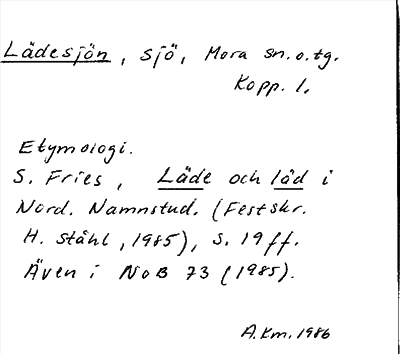 Lädesjön, sjö, Mora sn.o.tg.
Kopp. l.
Etymologi.
S. Fries, Läde och låd i
Nord. Namnstud. (Festskr.
H. Ståhl, 1985), s. 19 ff.
Även i NoB 73 (1985).
A.Km. 1986